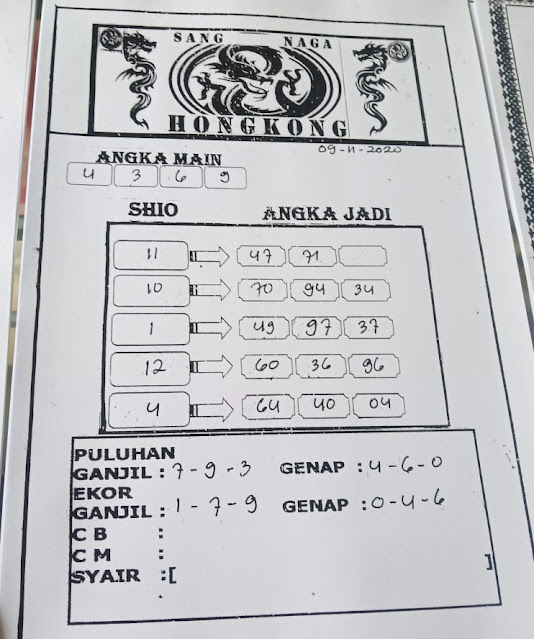 SANG NAGA
HONGKONG
09-11-2020
ANGKA MAIN
4 3 6 9
SHIO ANGKA JADI
11 47 71
10 70 94 34
1 49 97 37
12 60 36 96
4 64 40 04
PULUHAN
GANJIL : 7-9-3 GENAP : 4-6-0
EKOR
GANJIL : 1-7-9 GENAP : 0-4-6
C B :
C M :
SYAIR :[ ]